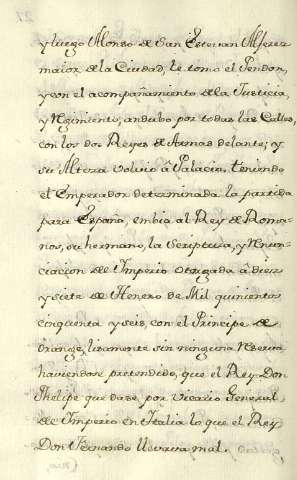 y luego Alonso de San Estevan Alferez
maior de la Ciudad, le tomo el Pendon,
y con el acompañamiento de la Justicia,
y Regimiento, andubo por todas las Calles,
con los dos Reyes de Armas delante; y
su Alteza volvio â Palacio, teniendo
el Emperador determinada la partida
para España, embio al Rey de Roma-
nos, su hermano, la Scriptura, y Renun-
ciacion de Imperio otorgada â diez
y siete de Henero de Mil quinientos
cinquenta y seis, con el Principe de
Orange, libremente sin ninguna Reserva
haviendose pretendido, que el Rey Don
Phelipe quedase por Vicario General
de Imperio en Italia lo que el Rey
Don Fernando llevava mal.